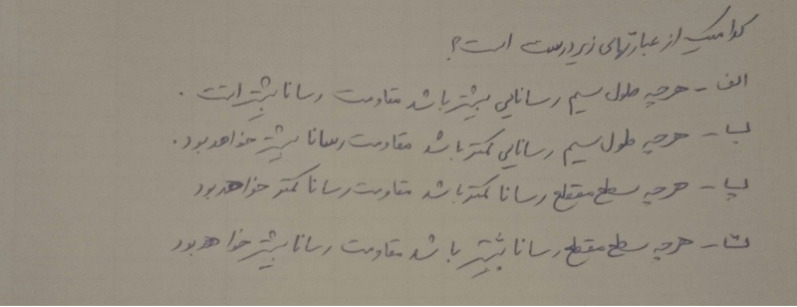 کدامیک از عبارتهای زیر درست است؟
الف - هرچه طول سیم رسانایی بیشتر باشد مقاومت رسانا بیشتر است .
ب - هرچه طول سیم رسانایی کمتر باشد مقاومت رسانا بیشتر خواهد بود .
پ - هرچه سطح مقطع رسانا کمتر باشد مقاومت رسانا کمتر خواهد بود
ت - هرچه سطح مقطع رسانا بیشتر باشد مقاومت رسانا بیشتر خواهد بود